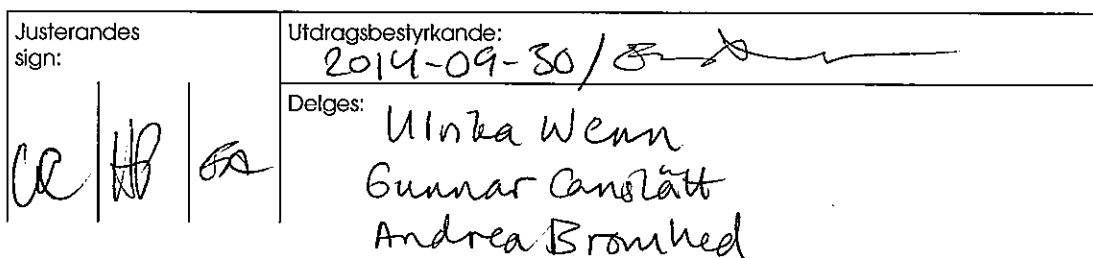 Justerandes
sign:
Utdragsbestyrkande:
2014-09-30/
Delges:
Ulrika Wenn
Gunnar
Andrea Bromhed